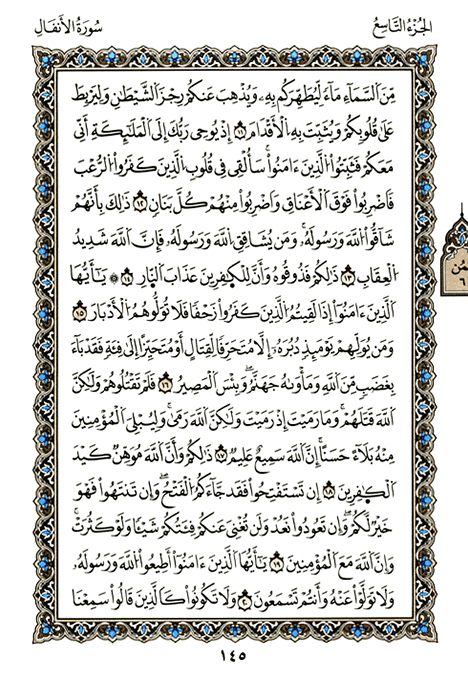 الجُزْءُ التَّاسِعُ
سُورَةُ الأَنفَال
مِّنَ اَ۬لسَّمَآءِ مَآءٗ لِّيُطَهِّرَكُم بِهِۦ وَيُذْهِبَ عَنكُمْ رِجْزَ اَ۬لشَّيْطَٰنِ وَلِيَرْبِطَ
عَلَىٰ قُلُوبِكُمْ وَيُثَبِّتَ بِهِ اِ۬لْأَقْدَامَ ١١ إِذْ يُوحِے رَبُّكَ إِلَى اَ۬لْمَلَٰٓئِكَةِ أَنِّي
مَعَكُمْ فَثَبِّتُواْ اُ۬لذِينَ ءَامَنُواْۖ سَأُلْقِے فِے قُلُوبِ اِ۬لذِينَ كَفَرُواْ اُ۬لرُّعْبَ
فَاضْرِبُواْ فَوْقَ اَ۬لْأَعْنَاقِ وَاضْرِبُواْ مِنْهُمْ كُلَّ بَنَانٖ ١٢ ذَٰلِكَ بِأَنَّهُمْ
شَآقُّواْ اُ۬للَّهَ وَرَسُولَهُۥۖ وَمَنْ يُّشَاقِقِ اِ۬للَّهَ وَرَسُولَهُۥ فَإِنَّ اَ۬للَّهَ شَدِيدُ
اُ۬لْعِقَابِ ١٣ ذَٰلِكُمْ فَذُوقُوهُ وَأَنَّ لِلْكَٰفِرِينَ عَذَابَ اَ۬لنَّارِ ١٤ ۞ يَٰٓأَيُّهَا
اَ۬لذِينَ ءَامَنُوٓاْ إِذَا لَقِيتُمُ اُ۬لذِينَ كَفَرُواْ زَحْفاٗ فَلَا تُوَلُّوهُمُ اُ۬لْأَدْبَارَ ١٥
وَمَنْ يُّوَلِّهِمْ يَوْمَئِذٖ دُبُرَهُۥٓ إِلَّا مُتَحَرِّفاٗ لِّقِتَالٍ أَوْ مُتَحَيِّزاً إِلَىٰ فِئَةٖ فَقَدْ بَآءَ
بِغَضَبٖ مِّنَ اَ۬للَّهِ وَمَأْوَىٰهُ جَهَنَّمُۖ وَبِئْسَ اَ۬لْمَصِيرُ ١٦ فَلَمْ تَقْتُلُوهُمْ وَلَٰكِنَّ
اَ۬للَّهَ قَتَلَهُمْۖ وَمَا رَمَيْتَ إِذْ رَمَيْتَ وَلَٰكِنَّ اَ۬للَّهَ رَمَىٰۖ وَلِيُبْلِيَ اَ۬لْمُؤْمِنِينَ
مِنْهُ بَلَآءً حَسَناًۖ إِنَّ اَ۬للَّهَ سَمِيعٌ عَلِيمٞ ١٧ ذَٰلِكُمْ وَأَنَّ اَ۬للَّهَ مُوَهِّنٞ كَيْدَ
اَ۬لْكَٰفِرِينَ ١٨ إِن تَسْتَفْتِحُواْ فَقَدْ جَآءَكُمُ اُ۬لْفَتْحُۖ وَإِن تَنتَهُواْ فَهْوَ
خَيْرٞ لَّكُمْۖ وَإِن تَعُودُواْ نَعُدْ وَلَن تُغْنِيَ عَنكُمْ فِئَتُكُمْ شَيْـٔاٗ وَلَوْ كَثُرَتْۖ
وَإِنَّ اَ۬للَّهَ مَعَ اَ۬لْمُؤْمِنِينَ ١٩ يَٰٓأَيُّهَا اَ۬لذِينَ ءَامَنُوٓاْ أَطِيعُواْ اُ۬للَّهَ وَرَسُولَهُۥ
وَلَا تَوَلَّوْاْ عَنْهُ وَأَنتُمْ تَسْمَعُونَ ٢٠ وَلَا تَكُونُواْ كَالذِينَ قَالُواْ سَمِعْنَا
ثُمُن
٦
١٤٥